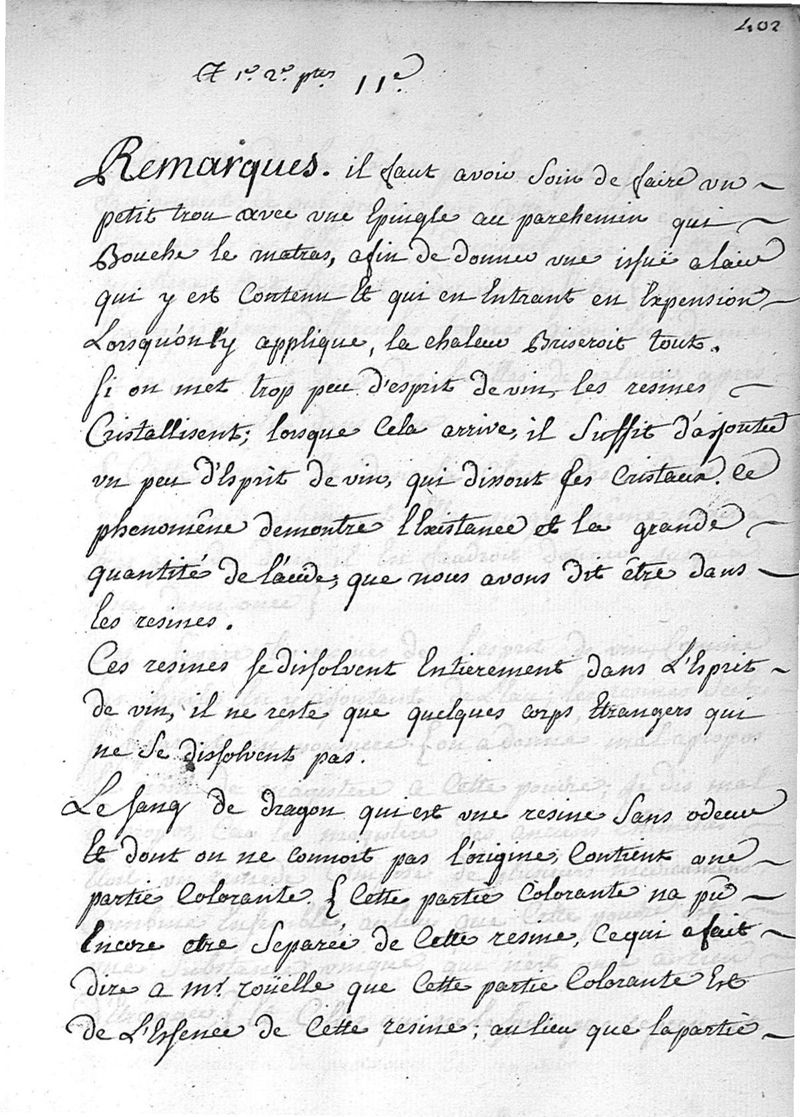 402
1e. 2e. ptes 11e.
Remarques. il faut avoir soin de faire un
petit trou avec une Epingle au parchemin qui
Bouche le matras, afin de donner une issuë a lair
qui y est Contenu Et qui en Entrant en Expension
Lorsqu'on l'y applique, la chaleur Briseroit tout.
si on met trop peu d'esprit de vin, les resines
Cristallisent; lorsque Cela arrive, il suffit d'ajouter
un peu d'Esprit de vin, qui dissout ses Cristaux. Ce
phenomêne demontre l'Existance et la grande
quantité de l'acide, que nous avons dit être dans
les resines.
Ces resines se dissolvent Entierement dans L'Esprit
de vin, il ne reste que quelques corps Etrangers qui
ne se dissolvent pas.
Le sang de dragon qui est une resine sans odeur
Et dont on ne connoit pas l'origine, Contient une
partie Colorante. { Cette partie Colorante na pû
Encore etre separée de Cette resine, Ce qui a fait
dire a mr. rouelle que Cette partie Colorante Est
de L'Essence de Cette resine; au lieu que la partie